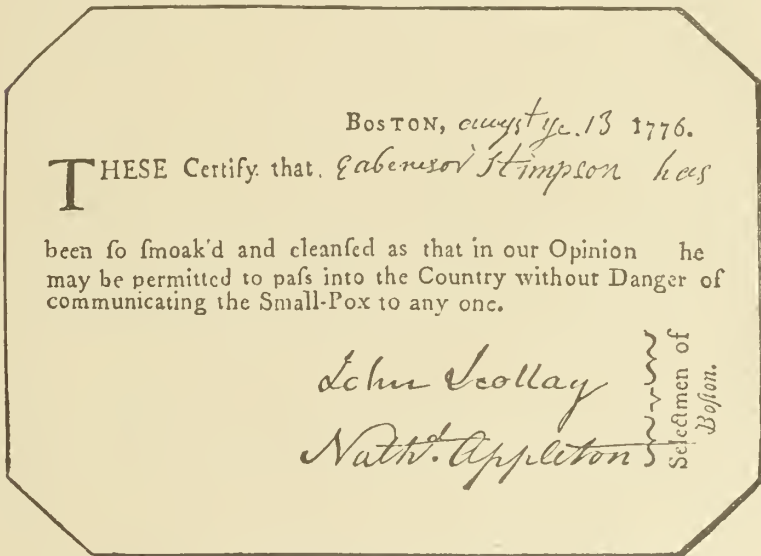 BOSTON, augst ye. 13 1776.
THESE Certify that, Eabenesor Stimpson has
been ſo ſmoak'd and cleanſed as that in our Opinion he
may be permitted to paſs into the Country without Danger of
communicating the Small-Pox to any one.
John Scollay
Nathd. Appleton
Selectmen of
Boſton.